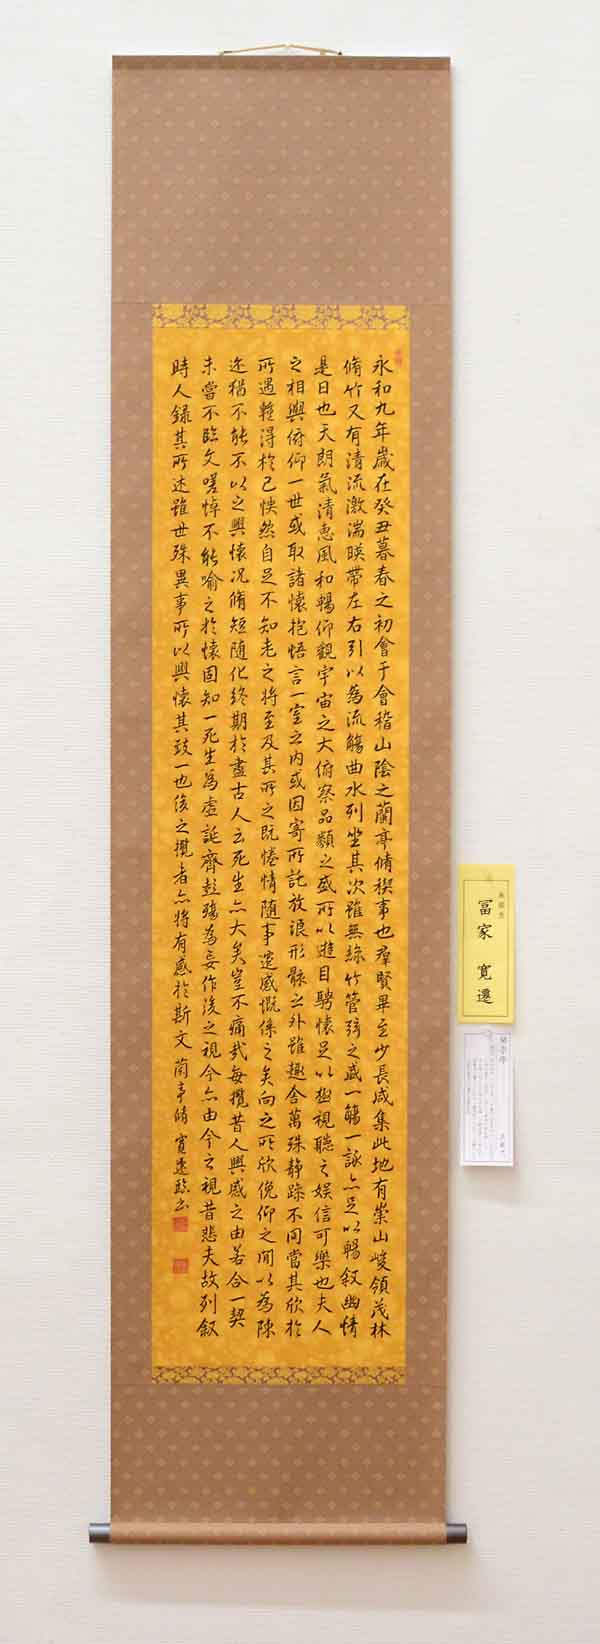 永和九年歲在癸丑暮春之初會于會稽山陰之蘭亭脩禊事也羣賢畢至少長咸集此地有崇山峻領茂林
脩竹又有清流激湍暎帶左右引以為流觴曲水列坐其次雖無絲竹管弦之盛一觴一詠亦足以暢叙幽情
是日也天朗氣清惠風和暢仰觀宇宙之大俯察品類之盛所以遊目騁懷足以極視聽之娛信可樂也夫人
之相與俯仰一世或取諸懷抱悟言一室之內或因寄所託放浪形骸之外雖趣舍萬殊静躁不同當其欣於
所遇輙得於己怏然自足不知老之將至及其所之既惓情隨事遷感慨係之矣向之所欣俛仰之閒以為陳
迹猶不能不以之興懷况脩短随化終期於盡古人云死生亦大矣豈不痛哉每攬昔人興感之由若合一契
未嘗不臨文嗟悼不能喻之於懷固知一死生為虛誕齊彭殤為妄作後之視今亦由今之視昔悲夫故列叙
時人錄其所述雖世殊異事所以興懷其致一也後之攬者亦將有感於斯文 蘭亭 寛遷臨書
冨家 寛遷
蘭亭序